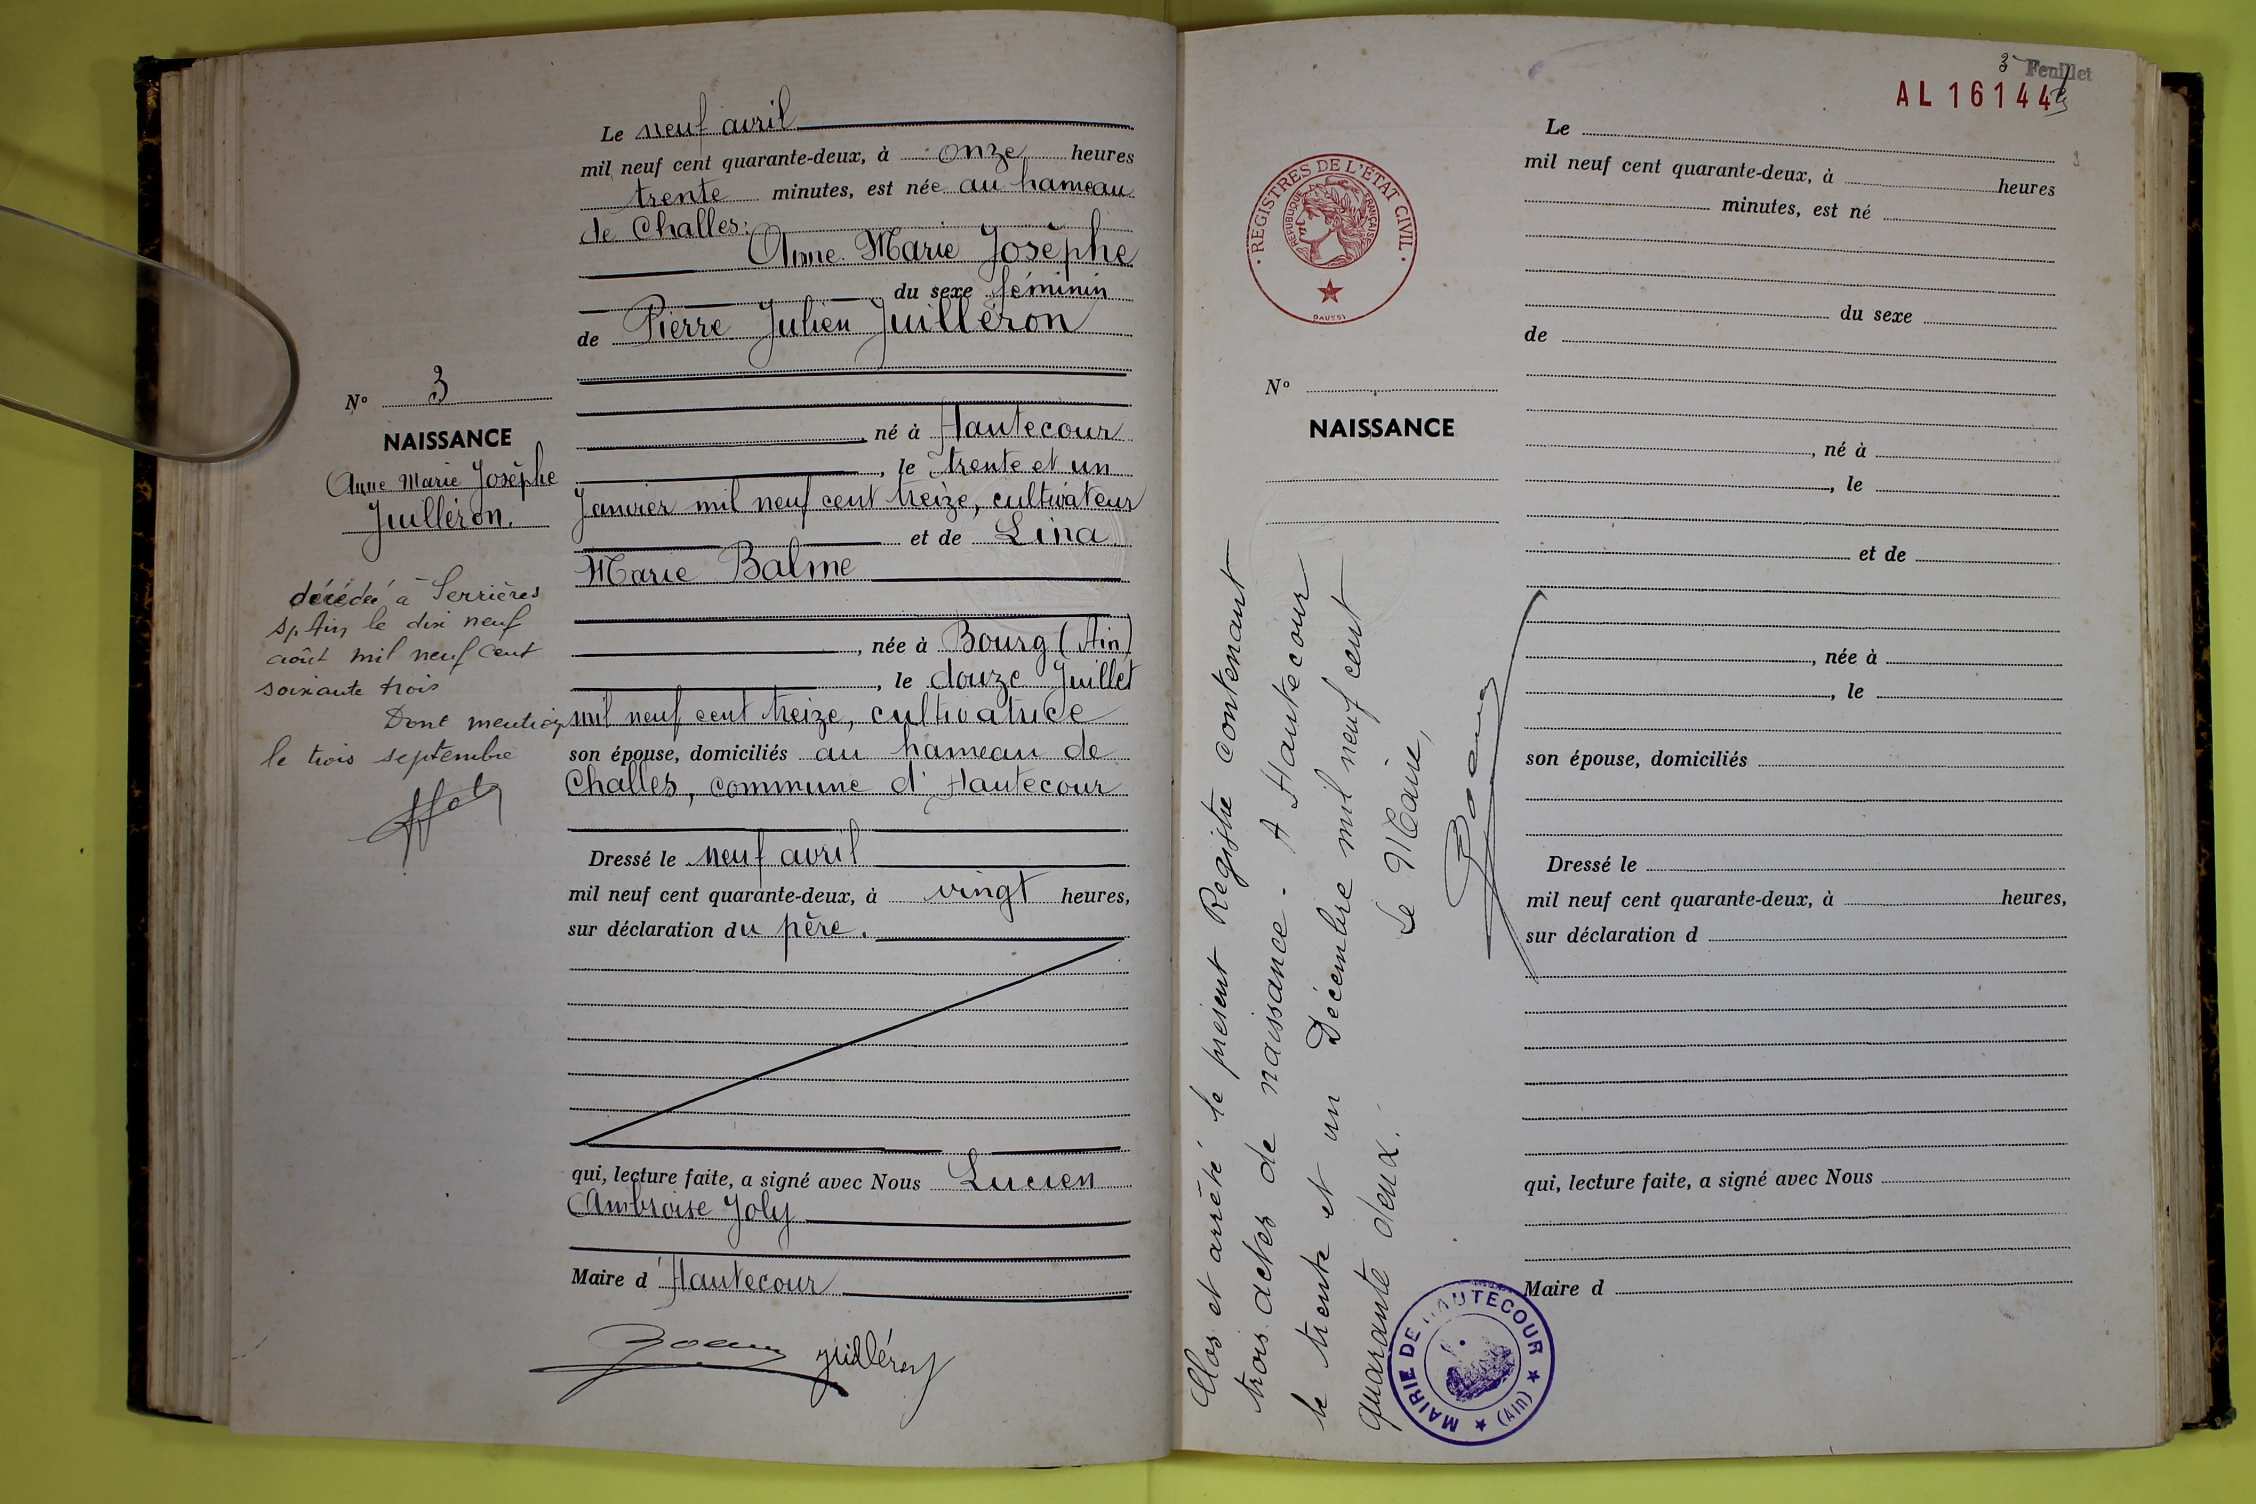 Le neuf avril
mil neuf cent quarante-deux, à onze heures
trente minutes, est née au hameau
de Challes:
Anne Marie Josèphe
du sexe féminin
de Pierre Julien Juilléron
né à Hautecour
, le trente et un
Janvier mil neuf cent treize, cultivateur
et de Lina
Marie Balme
, née à Bourg (Ain)
, le douze Juillet
mil neuf cent treize, cultivatrice
son épouse, domiciliés au hameau de
Challes, commune d'Hautecour
Dressé le neuf avril
mil neuf cent quarante-deux, à vingt heures,
sur déclaration du père.
qui, lecture faite, a signé avec Nous Lucien
Ambroise Joly
Maire d'Hautecour
Juilléron
N° 3
NAISSANCE
Anne Marie Josèphe
Juilléron.
décédée à Serrières
s/ Ain le dix neuf
août mil neuf cent
soixante trois
Dont mention
le trois septembre
3 Feuillet
AL 16144
REGISTRES DE L'ÉTAT CIVIL
RÉPUBLIQUE FRANÇAISE
DAUSSY
N°
NAISSANCE
Clos et arrêté le présent Registre contenant
trois actes de naissance. A Hautecour
le trente et un Décembre mil neuf cent
quarante deux. Le Maire,
MAIRIE DE HAUTECOUR
(Ain)
Le
mil neuf cent quarante-deux, à heures
minutes, est né
du sexe
de
, né à
, le
et de
, née à
, le
son épouse, domiciliés
Dressé le
mil neuf cent quarante-deux, à heures,
sur déclaration d
qui, lecture faite, a signé avec Nous
Maire d